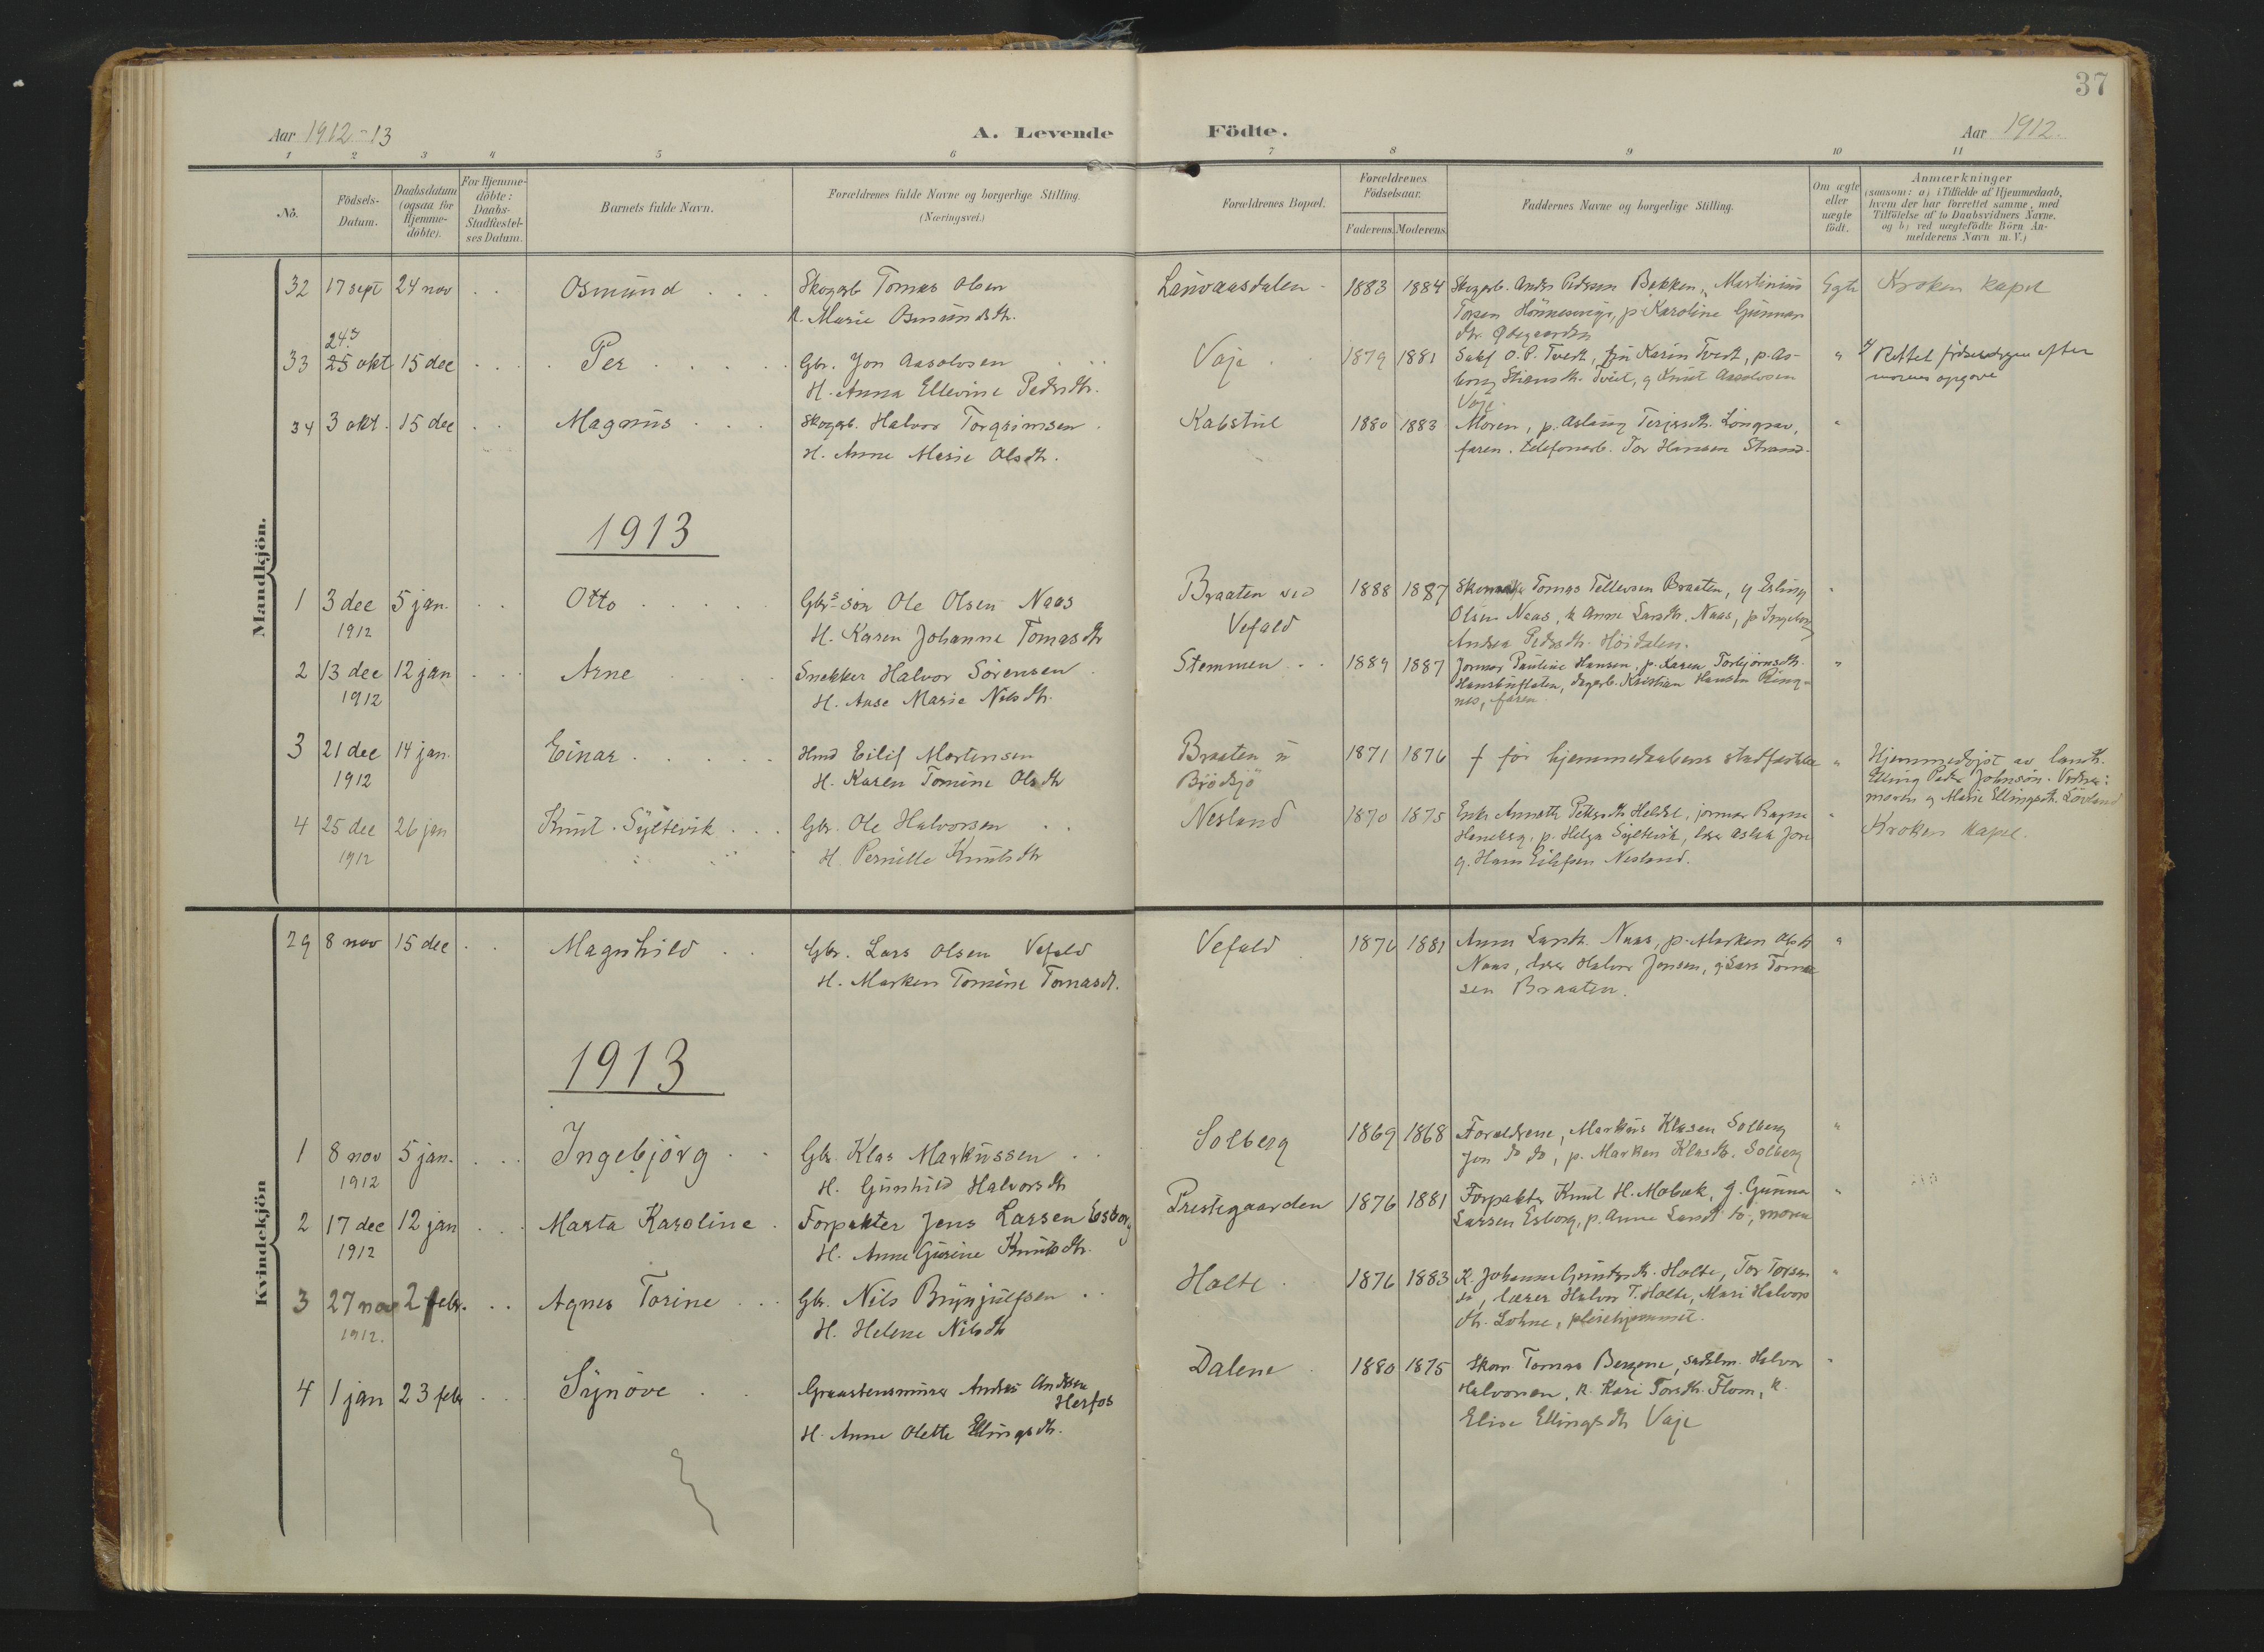 37
Aar 1912-13
A. Levende
Födte.
Aar 1912.
1 2 3 4 5 6 7 8 9 10 11
No.
Födsels-
Datum.
Daabsdatum
(ogsaa for
Hjemme-
döbte).
For Hjemme-
döbte:
Daabs-
Stadfæstel-
ses Datum.
Barnets fulde Navn.
Forældrenes fulde Navne og borgerlige Stilling.
(Næringsvei.)
Forældrenes Bopæl.
Forældrenes
Födselsaar.
Faderens. Moderens.
Faddernes Navne og borgerlige Stilling.
Om ægte
eller
uægte
födt.
Anmærkninger
(saasom: a) i Tilfælde af Hjemmedaab,
hvem der har forrettet samme, med
Tilföielse af to Daabsvidners Navne,
og b) ved uægtefödte Börn An-
melderens Navn m. V.)
Mandkjön.
32 17 sept 24 nov . . Osmund . . . Skogarb Tomas Olsen Lauvaasdalen 1883 1884 Skogarb. Anders Pedersen Bakken, Martinius Egte Kroken kapel
K. Marie Osmundsdtr. Torsen Hönnesvige, p Karoline Gunnar
dtr. Ödegaarden
24.
33 25 okt 15 dec . . . Per . . . . Gbr. Jon Aasolvsen Vaje . . 1879 1881 Sakf O. P. Tveit, fru Karin Tveit, p. As- " Rettet fødselsdagen efter
H. Anna Ellevine Pedersdtr. borg Stiansdtr. Tveit, g Knut Aasolvsen morens opgave
Vaje.
34 3 okt. 15 dec . . Magnus . . . Skogarb. Halvor Torgrimsen . Kabstul 1880 1883 Moren, p. Aslaug Terjesdtr. Longrav, "
H. Anne Marie Olsdtr. faren. telefonarb. Tor Hansen Strand.
1913
1 3 dec 5 jan. . . Otto . . . . Gbrs-søn Ole Olsen Naas Braaten ved 1888 1887 Skomaker Tomas Tellevsen Braaten, g Erling "
1912 H. Karen Johanne Tomasdtr Vefald Olsen Naas, k Anne Larsdtr. Naas, p Ingeborg
Andrea Pedersdtr. Höidalen.
2 13 dec 12 jan . . . Arne . . . Snekker Halvor Sörensen . Stemmen . . 1889 1887 Jormor Pauline Hansen, p. Karen Torbjörnsdtr. "
1912 H. Aase Marie Nilsdtr. dagarb. Kristian Hansen Ring-
nes, faren
3 21 dec 14 jan. Einar . . . . . Hmd Eilif Mortensen Braaten u 1871 1876 f før hjemmedaabens stadfæstelse " Hjemmedöpt av landh.
1912 H. Karen Tomine Olsdtr Brödsjö Elling Peder Johnson. Vidner:
moren og Marie Ellingsdtr. Lövland
4 25 dec 26 jan Knut Syltevik . . . Gbr. Ole Halvorsen . . Nesland 1870 1875 Enke Annette Petersdtr Heldal, jormor Ragna " Kroken kapel.
1912 H. Pernille Knutsdtr Haneberg, p. Helga Syltevik, lærer Aslak Jore
g. Hans Eilefsen Nesland.
Kvindekjön
29 8 nov 15 dec . . Magnhild . . Gbr. Lars Olsen Vefald Vefald 1876 1881 Anne Larsdtr. Naas, p. Marken Olsdtr "
H. Marken Tomine Tomasdt. Naas, lærer Halvor Jonsen, g Lars Tomas
sen Braaten.
1913
1 8 nov 5 jan. . . . Ingebjörg . . Gbr. Klas Markussen . . Solberg 1869 1868 Forældrene, Markus Klasen Solberg "
1912 H. Gunhild Halvorsdtr Jon do do, p. Marken Klasdtr. Solberg
2 17 dec 12 jan . . . Marta Karoline . Forpakter Jens Larsen Esborg Prestegaarden 1876 1881 Forpakter Knut H. Mobæk, g. Gunnar "
1912 H. Anne Gurine Knutsdtr. Larsen Esborg, p. Anne Larsdt do, moren
3 27 nov 2 febr. . . Agnes Torine . . . Gbr. Nils Brynjulfsen . . Holte . 1876 1883 K. Johanne Gunders dtr. Holte, Tor Torsen "
1912. H. Helene Nilsdtr do, lærer Halvor T. Holte, Mari Halvors
dtr. Lohne, pleiehjemmet.
4 1 jan 23 febr . . . Synöve . . Graastensmurer Anders Andersen Dalene . 1880 1875 Skom Tomas Bergene, sadelm. Halvor "
Herfos Halvorsen, K. Kari Torsdtr. Flom, K.
H. Anne Olette Ellingsdtr. Elise Ellingsdtr Vaje